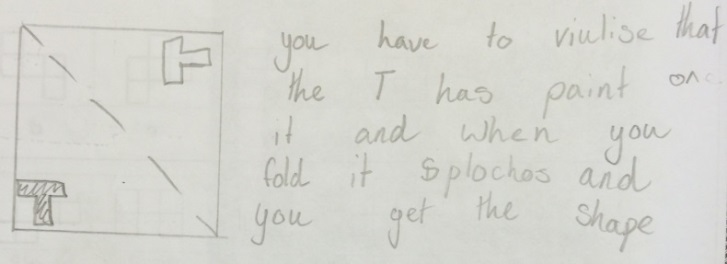 you have to viulise that
the T has paint on
it and when you
fold it splochos and
you get the shape